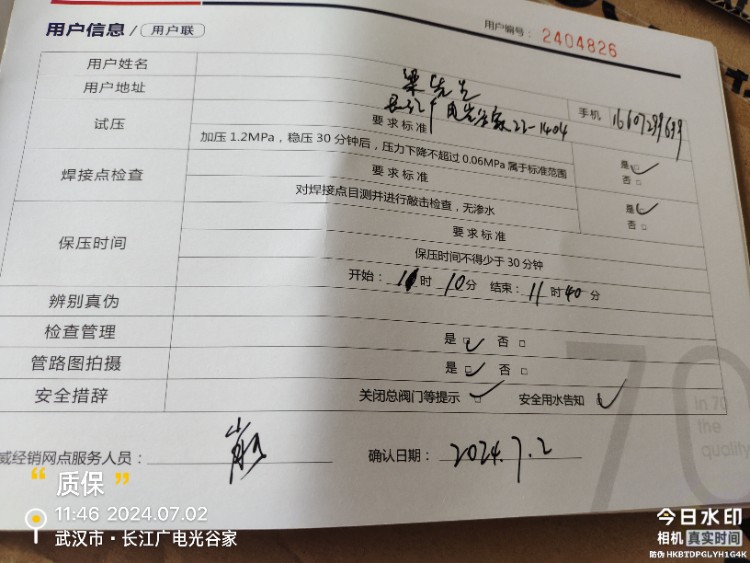 用户信息 / 用户联
用户编号: 2404826
用户姓名 梁先生
用户地址 长江广电光谷家22-1404 手机
试压 要求标准
加压 1.2MPa，稳压 30 分钟后，压力下降不超过 0.06MPa 属于标准范围 是□✓ 否□
焊接点检查 要求标准
对焊接点目测并进行敲击检查，无渗水 是□✓ 否□
保压时间 要求标准
保压时间不得少于 30 分钟
开始: 时 10分 结束: 11时40分
辨别真伪
检查管理 是□✓ 否□
管路图拍摄 是□✓ 否□
安全措辞 关闭总阀门等提示□✓ 安全用水告知□✓
威经销网点服务人员:
确认日期: 2024.7.2
70
in 70
the
quality
“质保”
11:46 2024.07.02
武汉市·长江广电光谷家
今日水印
相机 真实时间
防伪 HKBTDPGLYH1G4K